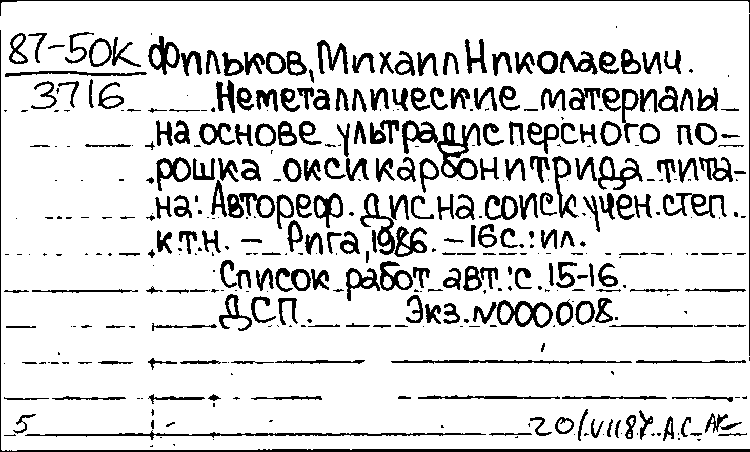 87-50К Фильков, Михаил Николаевич.
3716 Неметаллические материалы
на основе ультрадисперсного по-
рошка оксикарбонитрида тита-
на: Автореф. дис. на соиск. учен. степ.
к.т.н. – Рига, 1986. – 16 с.: ил.
Список работ авт.: с. 15-16.
ДСП. Экз. N000008.
5 20/VII87. А.С.